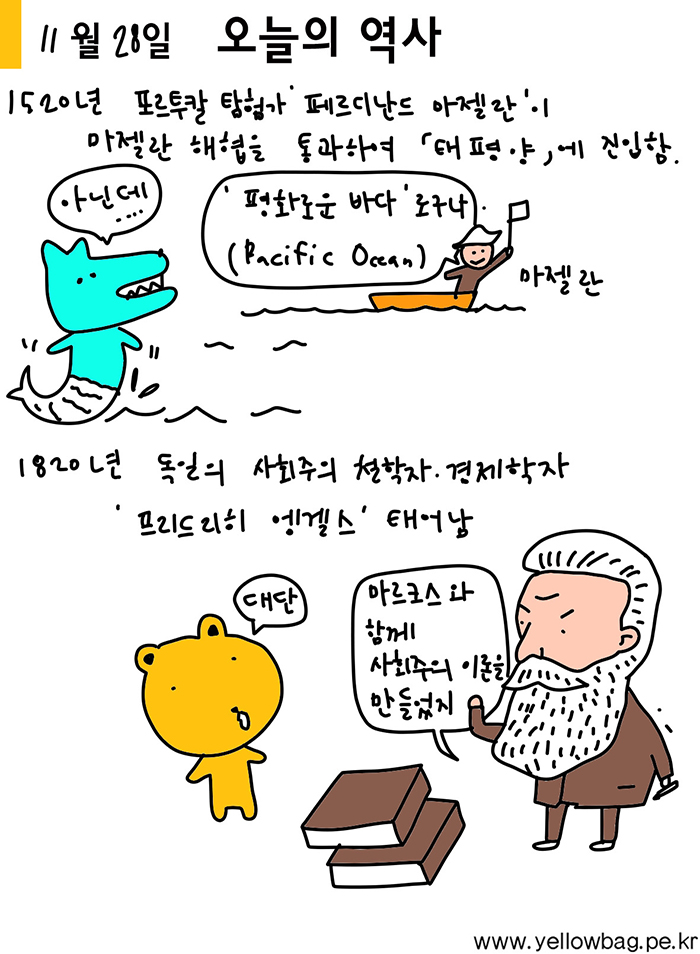 11월 28일 오늘의 역사
1520년 포르투칼 탐험가 '페르디난드 마젤란'이
마젤란 해협을 통과하여 「태평양」에 진입함.
아닌데....
'평화로운 바다'로구나.
(Pacific Ocean)
마젤란
1820년 독일의 사회주의 철학자·경제학자
'프리드리히 엥겔스' 태어남
대단
마르크스와
함께
사회주의 이론을
만들었지
www.yellowbag.pe.kr